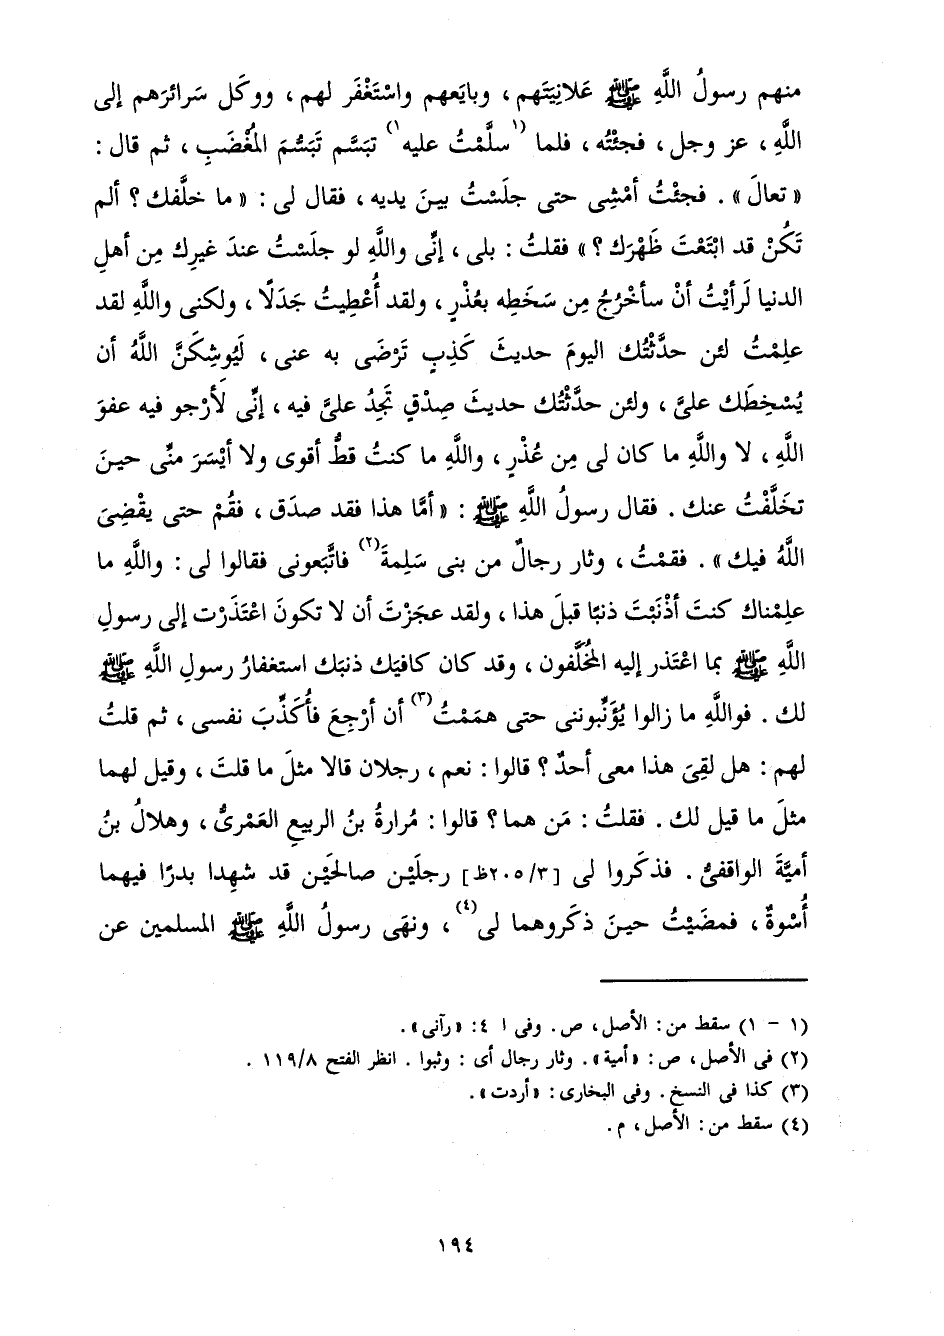 منهم رسولُ اللَّهِ ﷺ عَلانِيَتَهم، وبايَعهم واسْتَغْفَر لهم، ووكَل سَرائرَهم إلى
اللَّهِ، عز وجل، فجئتُه، فلما (١سلَّمْتُ عليه١) تبَسَّم تَبَسُّمَ المُغْضَبِ، ثم قال:
«تعالَ». فجئْتُ أمْشِى حتى جلَسْتُ بينَ يديه، فقال لى: «ما خلَّفك؟ ألم
تَكُنْ قد ابْتَعْتَ ظَهْرَك؟» فقلتُ: بلى، إنِّى واللَّهِ لو جلَسْتُ عندَ غيرِك مِن أهلِ
الدنيا لَرأيْتُ أنْ سأخْرُجُ مِن سَخَطِه بعُذْرٍ، ولقد أُعْطِيتُ جَدَلًا، ولكنى واللَّهِ لقد
علِمْتُ لئن حدَّثْتُك اليومَ حديثَ كَذِبٍ تَرْضَى به عنى، لَيُوشِكَنَّ اللَّهُ أن
يُسْخِطَك علىَّ، ولئن حدَّثْتُك حديثَ صِدْقٍ تَجِدُ علىَّ فيه، إنِّى لَأرْجو فيه عفوَ
اللَّهِ، لا واللَّهِ ما كان لى مِن عُذْرٍ، واللَّهِ ما كنتُ قطُّ أقوى ولا أيْسَرَ منِّى حينَ
تخَلَّفْتُ عنك. فقال رسولُ اللَّهِ ﷺ: «أمَّا هذا فقد صدَق، فقُمْ حتى يقْضِىَ
اللَّهُ فيك». فقمْتُ، وثار رجالٌ من بنى سَلِمةَ(٢) فاتَّبَعونى فقالوا لى: واللَّهِ ما
علِمْناك كنتَ أذْنَبْتَ ذنبًا قبلَ هذا، ولقد عجَزْتَ أن لا تكونَ اعْتَذَرْت إلى رسولِ
اللَّهِ ﷺ بما اعْتَذر إليه المُخَلَّفون، وقد كان كافيَك ذنبَك استغفارُ رسولِ اللَّهِ ﷺ
لك. فواللَّهِ ما زالوا يُؤَنِّبوننى حتى همَمْتُ(٣) أن أرْجِعَ فأُكَذِّبَ نفسى، ثم قلتُ
لهم: هل لقِىَ هذا معى أحدٌ؟ قالوا: نعم، رجلان قالا مثلَ ما قلتَ، وقيل لهما
مثلَ ما قيل لك. فقلتُ: مَن هما؟ قالوا: مُرارةُ بنُ الربيعِ العَمْرىُّ، وهلالُ بنُ
أميَّةَ الواقفىُّ. فذكَروا لى [٢٠٥/٣ظ] رجلَيْن صالحَيْن قد شهِدا بدرًا فيهما
أُسْوةٌ، فمضَيْتُ حينَ ذكَروهما لى(٤)، ونهَى رسولُ اللَّهِ ﷺ المسلمين عن
(١ - ١) سقط من: الأصل، ص. وفى ا ٤: «رآنى».
(٢) فى الأصل، ص: «أمية». وثار رجال أى: وثبوا. انظر الفتح ١١٩/٨.
(٣) كذا فى النسخ. وفى البخارى: «أردت».
(٤) سقط من: الأصل، م.
١٩٤